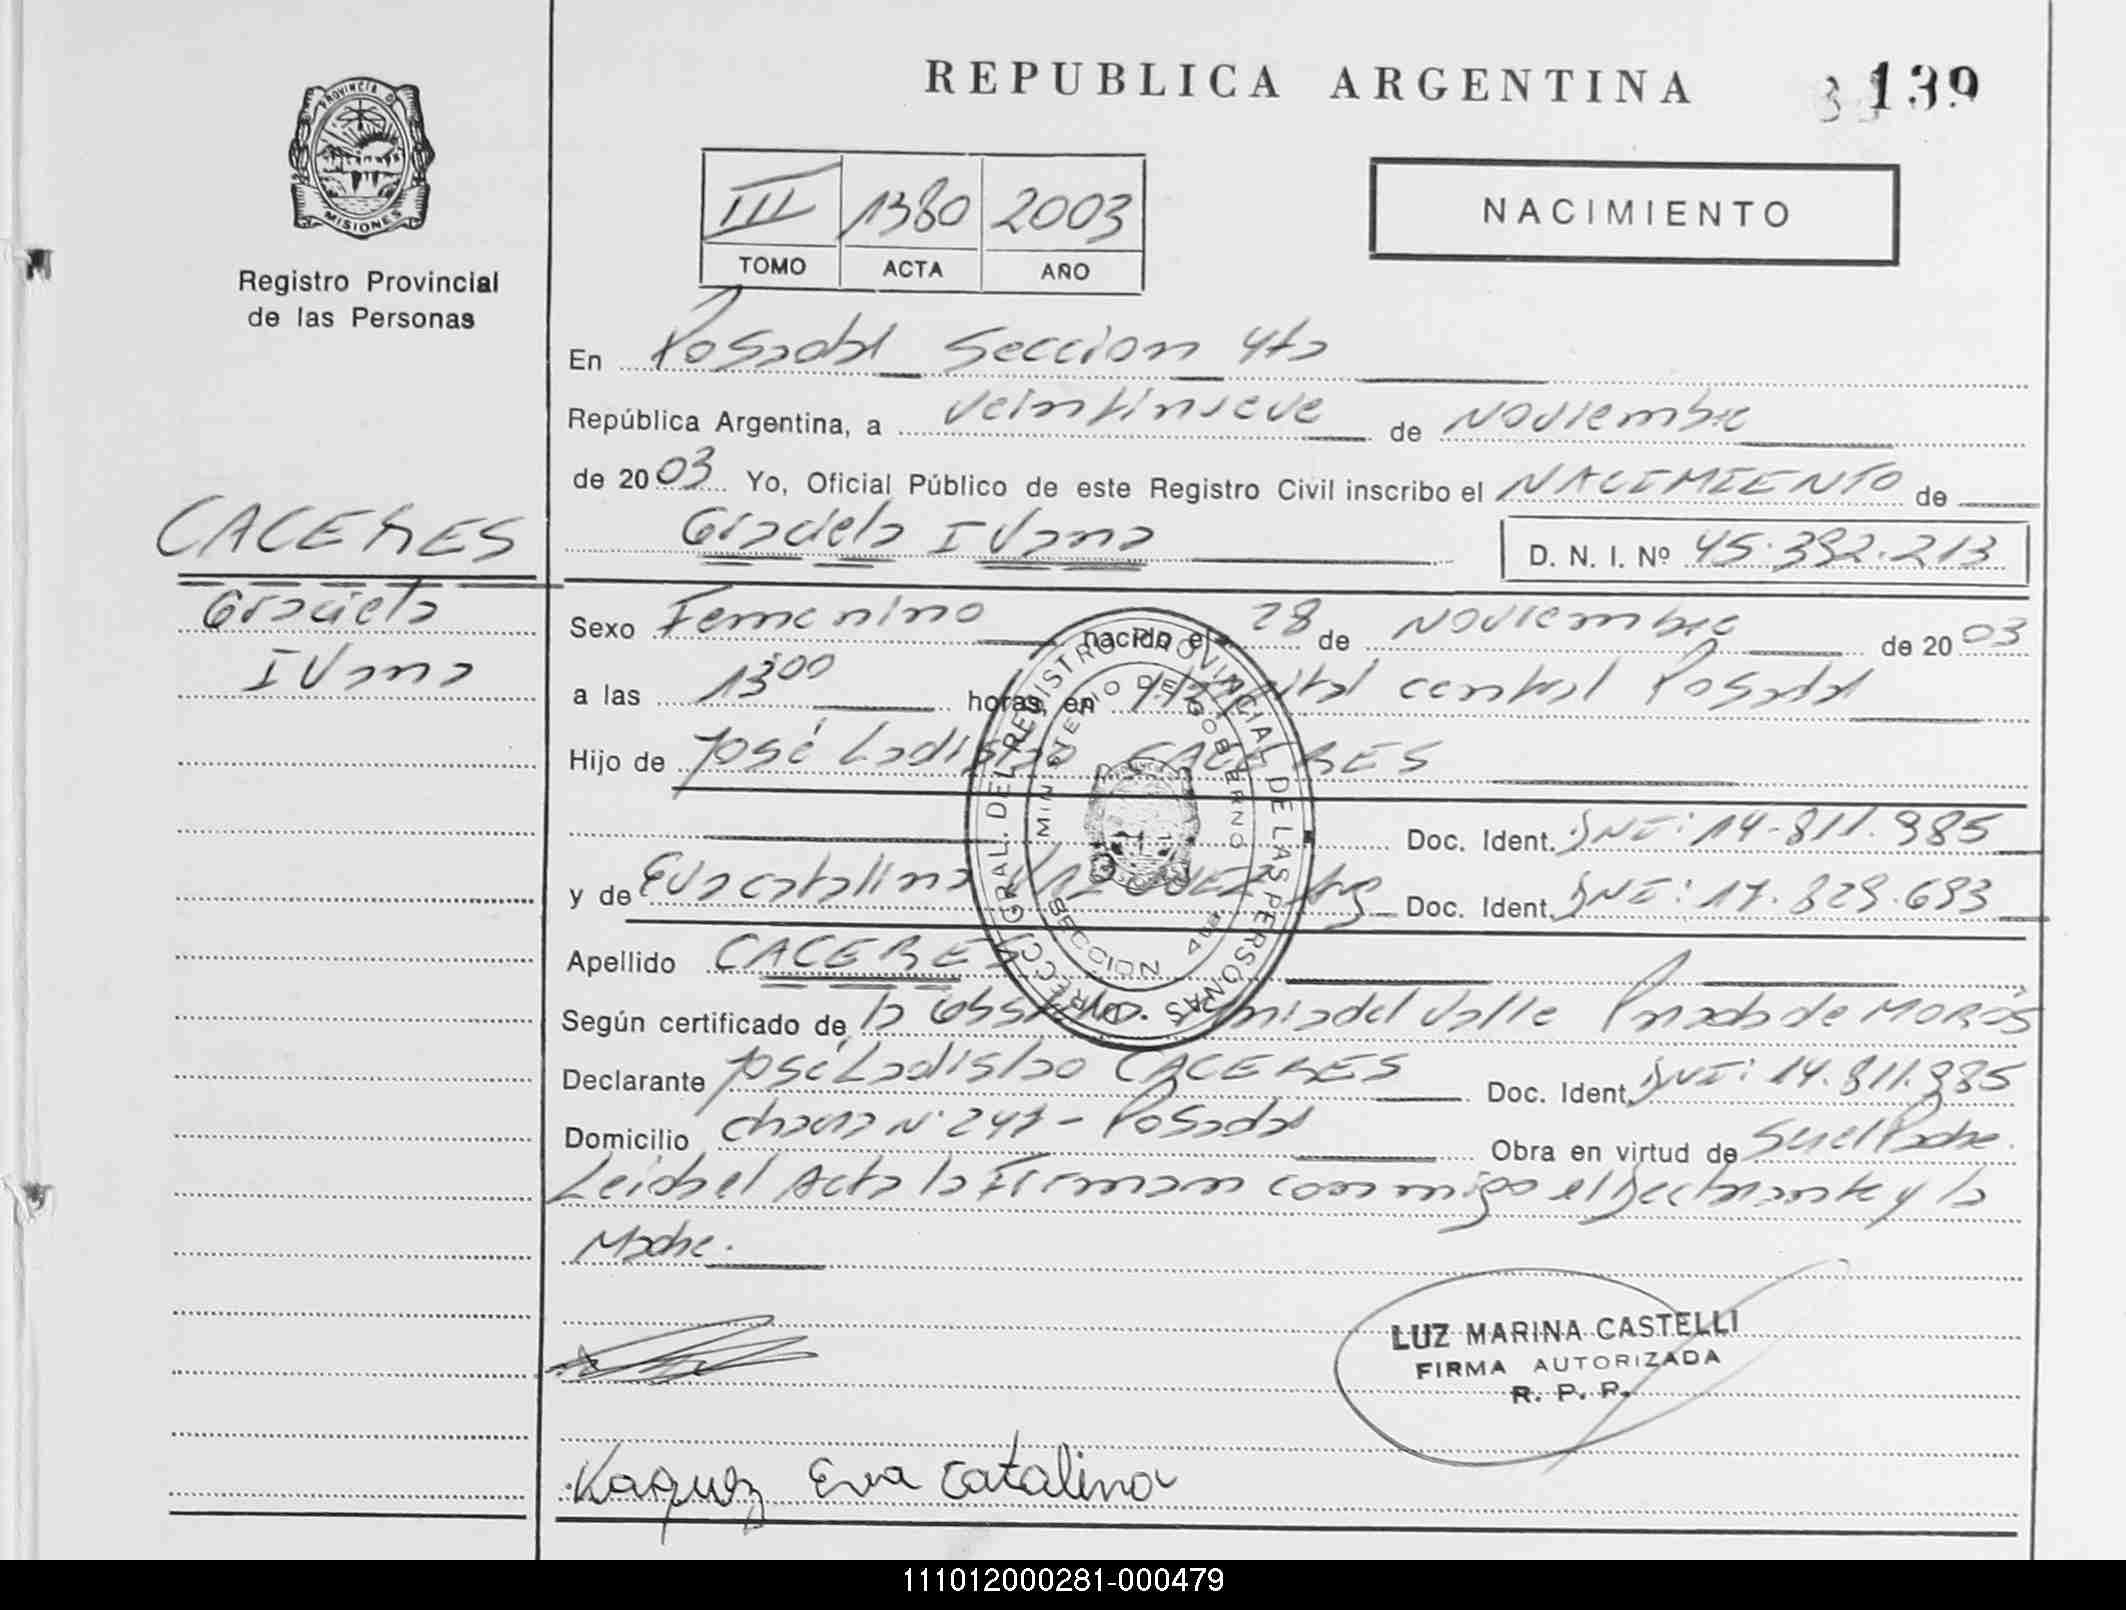 REPUBLICA ARGENTINA
139
PROVINCIA DE
MISIONES
Registro Provincial
de las Personas
III 1380 2003
TOMO ACTA AÑO
NACIMIENTO
En Posadas Seccion 4ta
República Argentina, a veintinueve de Noviembre
de 2003 Yo, Oficial Público de este Registro Civil inscribo el NACIMIENTO de
CACERES
Graciela Ivana
D. N. I. Nº 45.392.213
Graciela
Ivana
Sexo Femenino nacido el 28 de Noviembre de 2003
a las 13:00 horas, en Hospital central Posadas
Hijo de José Ladislao CACERES
Doc. Ident. DNI: 14.811.985
y de Eva Catalina Arg Doc. Ident. DNI: 17.829.693
Apellido CACERES
Según certificado de la del Valle de MOROS
Declarante José Ladislao CACERES Doc. Ident. DNI: 14.811.985
Domicilio chacra Nº 247 - Posadas Obra en virtud de Ser el Padre.
Leida el Acta la Firman conmigo el Declarante y la
Madre.
DIRECC. GRAL. DEL REGISTRO PROVINCIAL DE LAS PERSONAS
MINISTERIO DE GOBIERNO
SECCION 4ta
LUZ MARINA CASTELLI
FIRMA AUTORIZADA
R. P. P.
Vaquez Eva Catalina
111012000281-000479